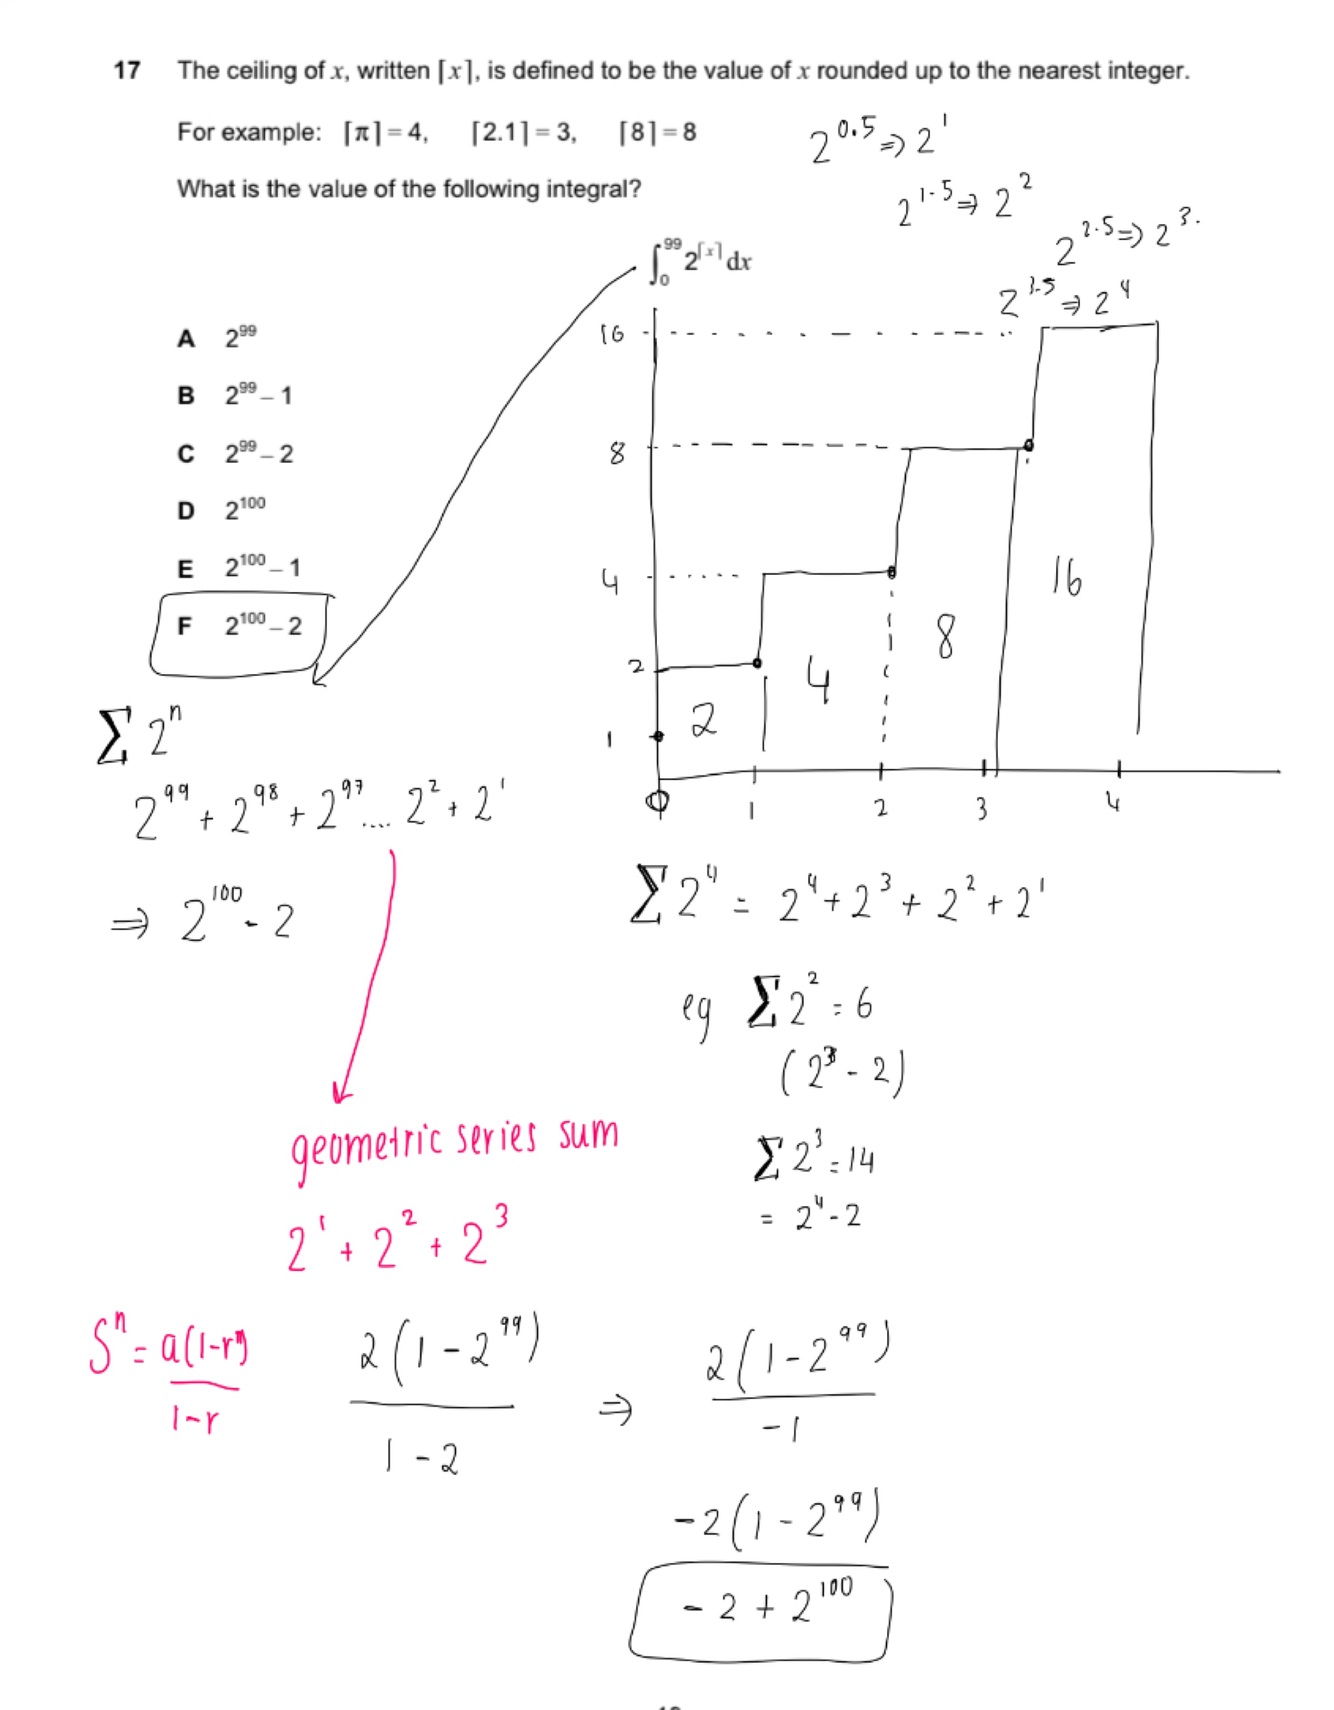 17 The ceiling of x, written ⌈x⌉, is defined to be the value of x rounded up to the nearest integer.
For example: ⌈π⌉ = 4, ⌈2.1⌉ = 3, ⌈8⌉ = 8
2^0.5 ⇒ 2^1
What is the value of the following integral?
2^1.5 ⇒ 2^2
2^2.5 ⇒ 2^3.
∫_0^99 2^⌈x⌉ dx
2^3.5 ⇒ 2^4
A 2^99
B 2^99 – 1
C 2^99 – 2
D 2^100
E 2^100 – 1
F 2^100 – 2
16
8
4
2
1
2
4
8
16
0 1 2 3 4
Σ 2^n
2^99 + 2^98 + 2^97 .... 2^2 + 2^1
⇒ 2^100 - 2
Σ 2^4 = 2^4 + 2^3 + 2^2 + 2^1
eg Σ 2^2 = 6
(2^3 - 2)
Σ 2^3 = 14
= 2^4 - 2
geometric series sum
2^1 + 2^2 + 2^3
S^n = a(1-r^n)
1-r
2(1 - 2^99)
1 - 2
⇒ 2(1 - 2^99)
-1
-2(1 - 2^99)
- 2 + 2^100